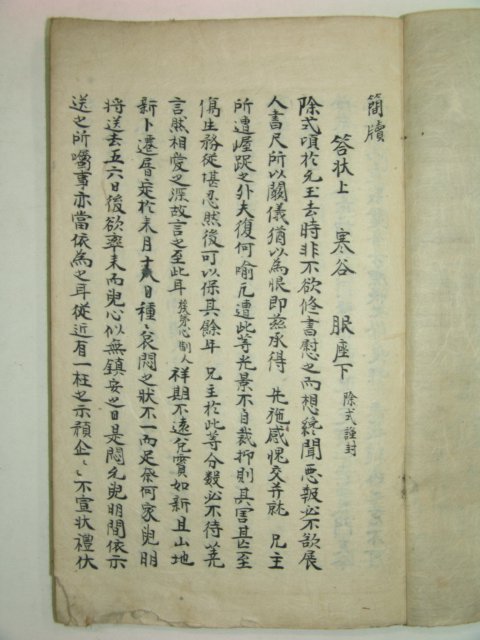 簡牘
答狀上 寒谷 服座下 除式謹封
除式頃於允玉去時非不欲修書慰之而想終聞惡報必不欲展
人書尺所以闕儀猶以為恨即茲承得 先施感愧交并就 兄主
所遭崛踀之外夫復何喻凡遭此等光景不自裁抑則其害甚至
傷生務從堪忍然後可以保其餘年 兄主於此等分數必不待蕘
言然相愛之深故言之至此耳 制人 祥期不遠 實如新且山地
新卜遷厝定於未月 日種種哀悶之狀不一而足癸何家兒明
將送去五六日後欲率來而兒心似無鎮安之日是悶允兒明間依示
送之所囑事亦當依為之耳從近有一枉之示顒企々不宣狀禮伏